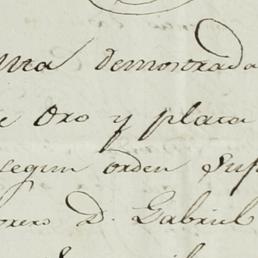 demostrada
Oro y plata
segun orden sup
orero D. Gabriel